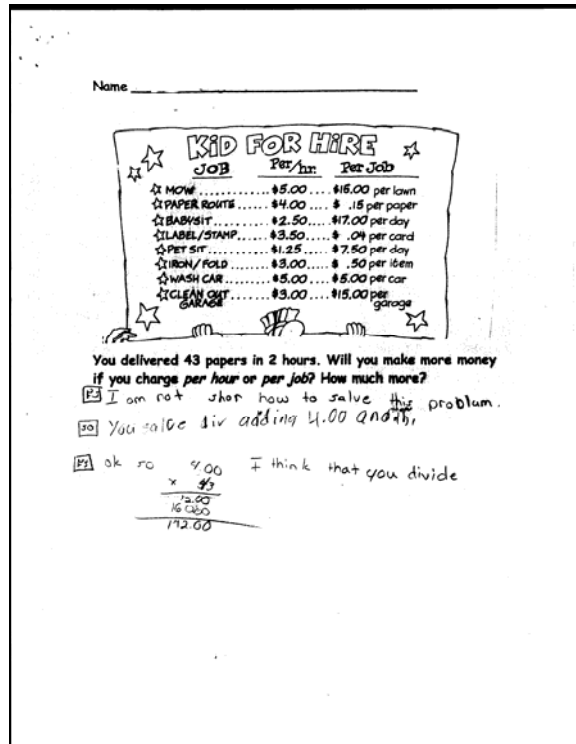 Name
KiD FOR HiRE
JOB Per/hr. Per Job
MOW............$5.00....$15.00 per lawn
PAPER ROUTE...$4.00....$ .15 per paper
BABYSIT.........$2.50....$17.00 per day
LABEL/STAMP...$3.50....$ .04 per card
PET SIT..........$1.25....$7.50 per day
IRON/FOLD......$3.00....$ .50 per item
WASH CAR.......$5.00....$5.00 per car
CLEAN OUT GARAGE......$3.00....$15.00 per garage
You delivered 43 papers in 2 hours. Will you make more money
if you charge per hour or per job? How much more?
I am not shor how to salve this problum.
You salve adding 4.00 and
ok so 4.00 I think that you divide
x 43
12.00
172.00